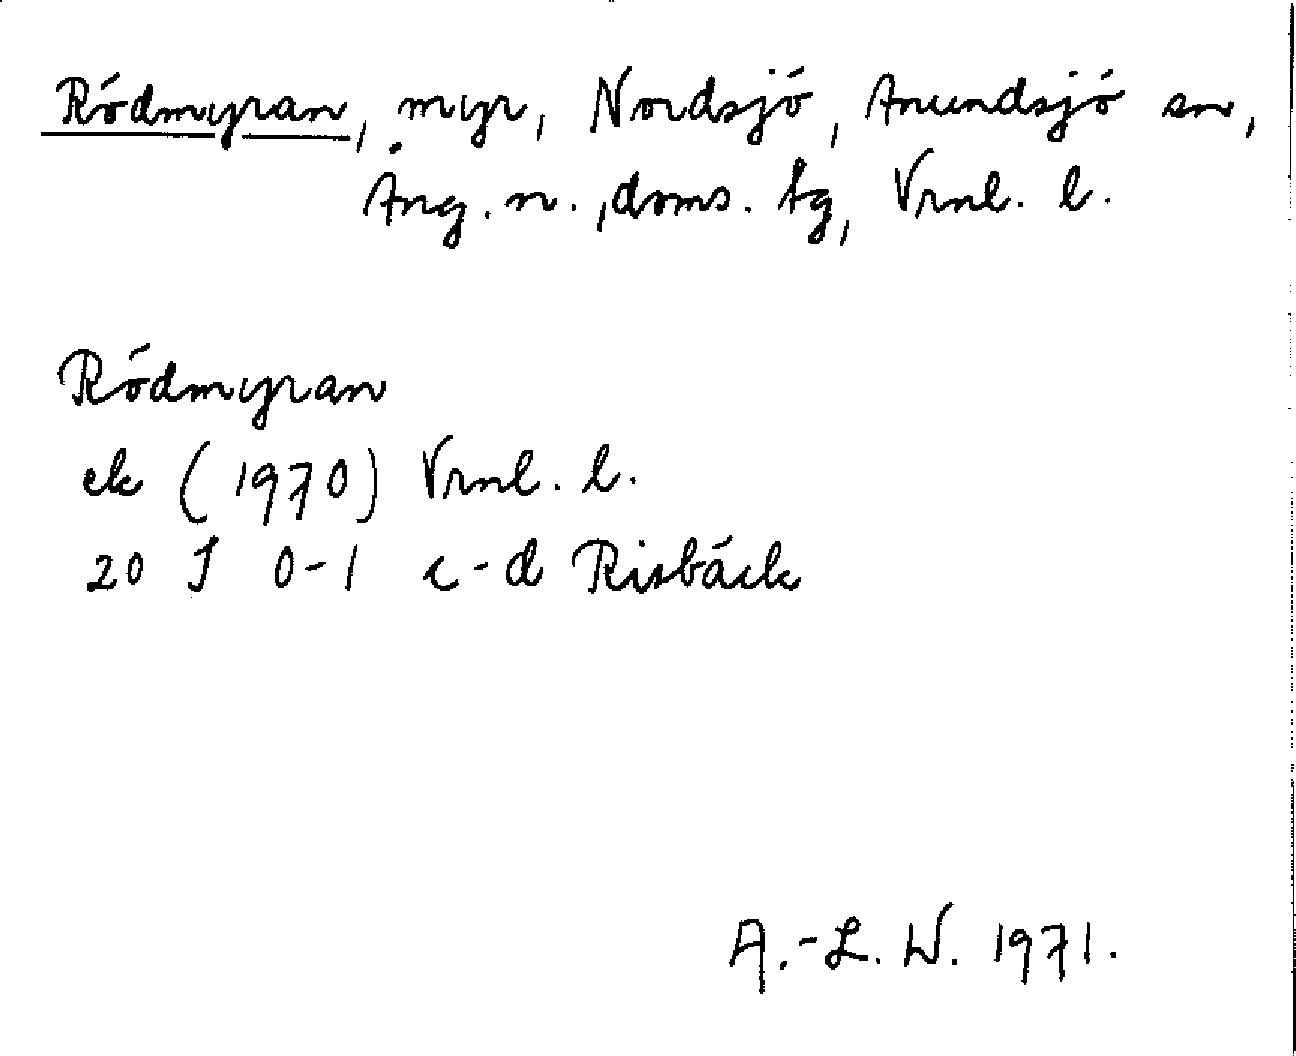 Rödmyran, myr, Nordsjö, Anundsjö sn,
Ång. n., doms. tg, Vrnl. l.
Rödmyran
ek (1970) Vrnl. l.
20 J 0-1 c-d Risbäck
A.-L. W. 1971.